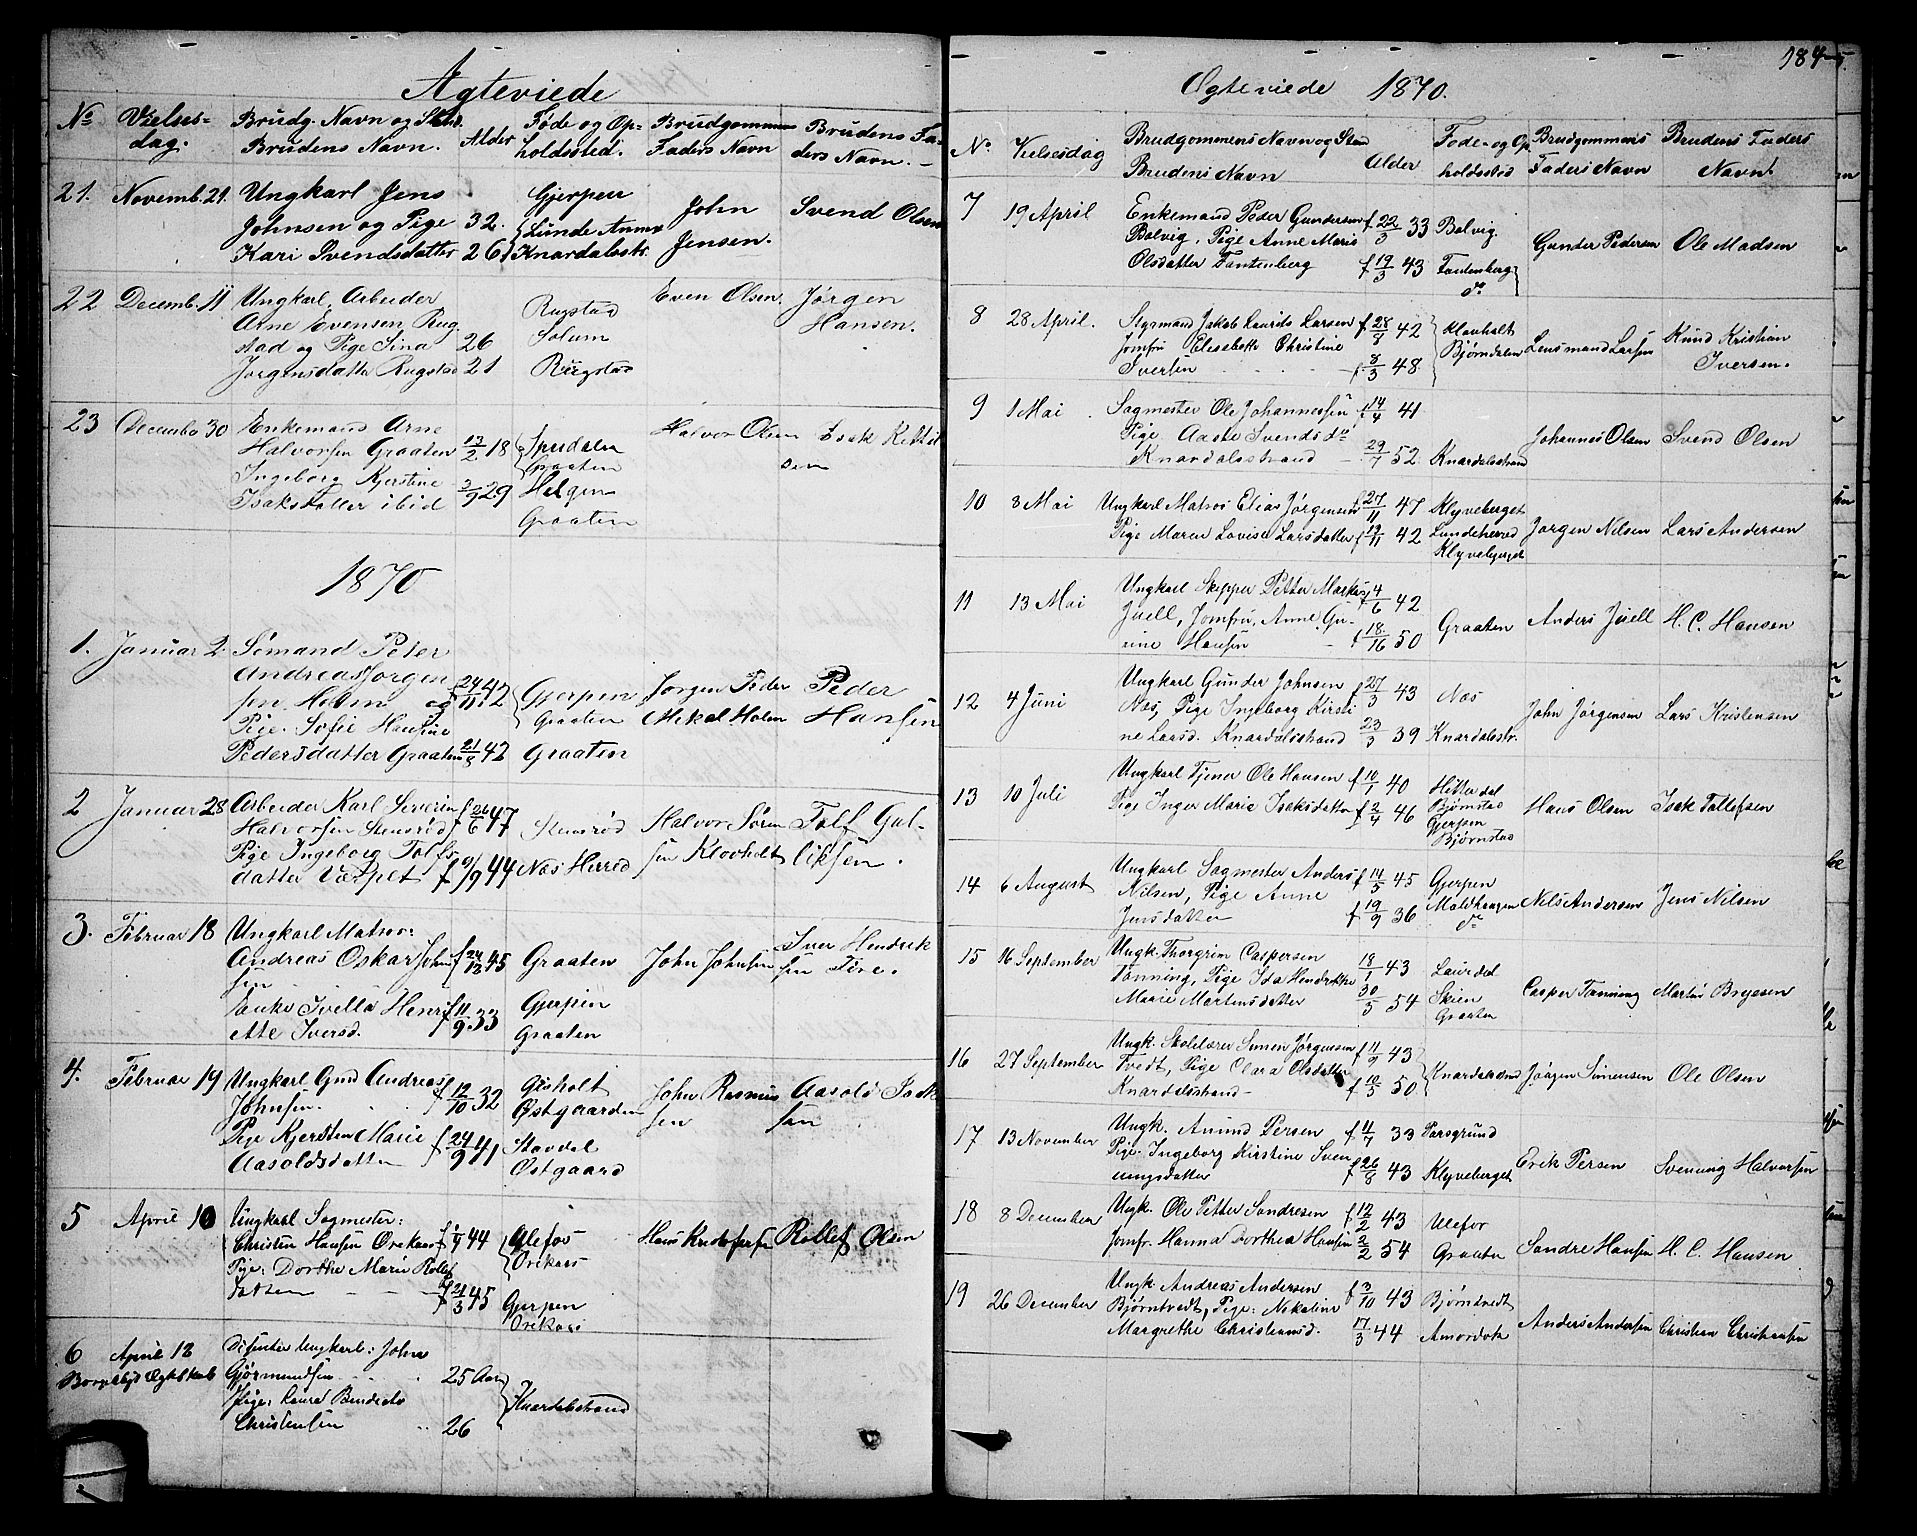 Agteviede
No Vielses-dag. Brudg. Navn og Stand. Brudens Navn. Alder Føde og Op-holdssted. Brudgommens Faders Navn Brudens Fa-ders Navn.
21. Novemb. 21. Ungkarl Jens Gjerpen John Svend Olsen
Johnsen og Pige 32. Lunde Jensen.
Kari Svendsdatter 26 Knardalsstr.
22 Decemb. 11 Ungkarl, Arbeider Rugstad Even Olsen. Jørgen
Arne Evensen Rug- Solum Hansen.
stad og Pige Sina 26
Jørgensdatter Rugstad 21 Rugstad
23 December 30 Enkemand Arne Halvor Olsen Isak Kittil
Halvorsen Graaten 13/2 18 Graaten sen
Ingeborg Kjerstine 3/9 29 Helgen
Isaksdatter ibid Graaten
1870
1. Januar 2. Sømand Peter
Andreas Jørgen
sen Holm og 24/11 42 Gjerpen Jørgen Peder Peder
Pige Sofie Hansine Graaten Mikal Holm Hansen
Pedersdatter Graaten 21/8 42 Graaten
2 Januar 28 Arbeider Karl Severin f 26/6 47 Stensrød Halvor Søren Tolf Gul-
Halvorsen Stensrød sen Klovholt liksen.
Pige Ingeborg Tolfs-
datter Værpet f 9/9 44 Næs Herred
3. Februar 18 Ungkarl Matros: Iver Hendrik
Andreas Oskar John f 24/12 45 Graaten John Johnsen sen
sen Gjerpen
Enke Ivella Henri f 11/9 33
ette Iversd. Graaten
4. Februar 19 Ungkarl Gund Andreas f 12/10 32 Gisholt John Rasmus Aasold Isak
Johnsen. Østgaarden sen sen
Pige Kjersten Marie f 24/9 41 Stavdal
Aasoldsdatter Østgaard
5 April 10 Ungkarl Sagmester: f 44 Ulefos Hans Rollef Olsen
Christen Hansen Orekaas Orekaas
Pige: Dorthe Marie Rollef
datter f 21/3 45 Gjerpen
Orekaas
6 April 12 Ungkarl: John
Borgerligt Egteskab Gjermundsen 25 Aar Knardalstrand
Pige: Laura Benedicte
Christensen 26
184
Egteviede 1870.
No Vielsesdag Brudgommens Navn og Stand Brudens Navn Alder Føde- og Op-holdssted Brudgommens Faders Navn Brudens Faders Navn.
7 19 April Enkemand Peder Gundersen f 22/3 33 Bolvig. Gunder Pedersen Ole Madsen
Bolvig, Pige Anne Maria
Olsdatter Fantenberg f 19/3 43 Fantenberg
do
8 28 April. Styrmand Jakob Laurits Larsen f 28/8 42 Klovholt Lensmand Larsen Knud Kristian
Jomfru Elisabeth Christine Bjørndalen Iversen.
Iversen f 8/3 48
9 1 Mai Sagmester Ole Johannessen f 14/4 41 Johannes Olsen Svend Olsen
Pige Aaste Svendsdr
Knardalsstrand 29/7 52 Knardalsstrand
10 8 Mai Ungkarl Matros Elias Jørgensen f 27/11 47 Klyveberget Jørgen Nilsen Lars Andersen
Pige Maren Lovise Larsdatter f 19/11 42 Lundeherred
Klyveberget
11 13 Mai Ungkarl Skipper Petter Markus f 4/6 42 Graaten Anders Juell H. C. Hansen
Juell, Jomfru, Anne Gu-
rine Hansen f 18/16 50
12 4 Juni Ungkarl Gunder Johnsen f 27/3 43 Næs John Jørgensen Lars Kristensen
Næs, Pige Ingeborg Kirsti
ne Larsd. Knardalsstrand 23/3 39 Knardalsstr.
13 10 Juli Ungkarl Tjener Ole Hansen f 10/1 40 Hitterdal Hans Olsen Isak Tollefsen
Pige Inger Marie Isaksdatter f 2/4 46 Bjørnstad
Gjerpen
Bjørnstad
14 6 August Ungkarl Sagmester Anders f 14/5 45 Gjerpen Nils Andersen Jens Nilsen
Nilsen, Pige Anne Moldhaugen
Jensdatter f 19/9 36 do
15 16 September Ungk. Thorgrim Caspersen 18/1 43 Laurdal Casper Tanning Martin Bryesen
Tanning, Pige Ida Hendrikke Skien
Marie Martinsdatter 30/5 54 Graaten
16 27 September Ungk. Skolelærer Simen Jørgensen f 11/9 43 Knardalstrand Jørgen Simensen Ole Olsen
Tvedt, Pige Clara Olsdatter
Knardalsstrand f 10/5 50
17 13 November Ungk. Amund Persen f 11/7 33 Porsgrund Erik Persen Svenung Halvorsen
Pige Ingeborg Kirstine Sven
ungsdatter f 26/8 43 Klyveberget
18 8 December Ungk. Ole Petter Sondresen f 12/2 43 Ulefos Sondre Hansen H. C. Hansen
Jomfr. Hanna Dorthea Hansen 2/2 54 Graaten
19 26 December Ungk. Andreas Andersen f 3/10 43 Bjørntvedt Anders Andersen Christian Christiansen
Bjørntvedt, Pige: Nekoline
Margrethe Christiansd. 17/3 44